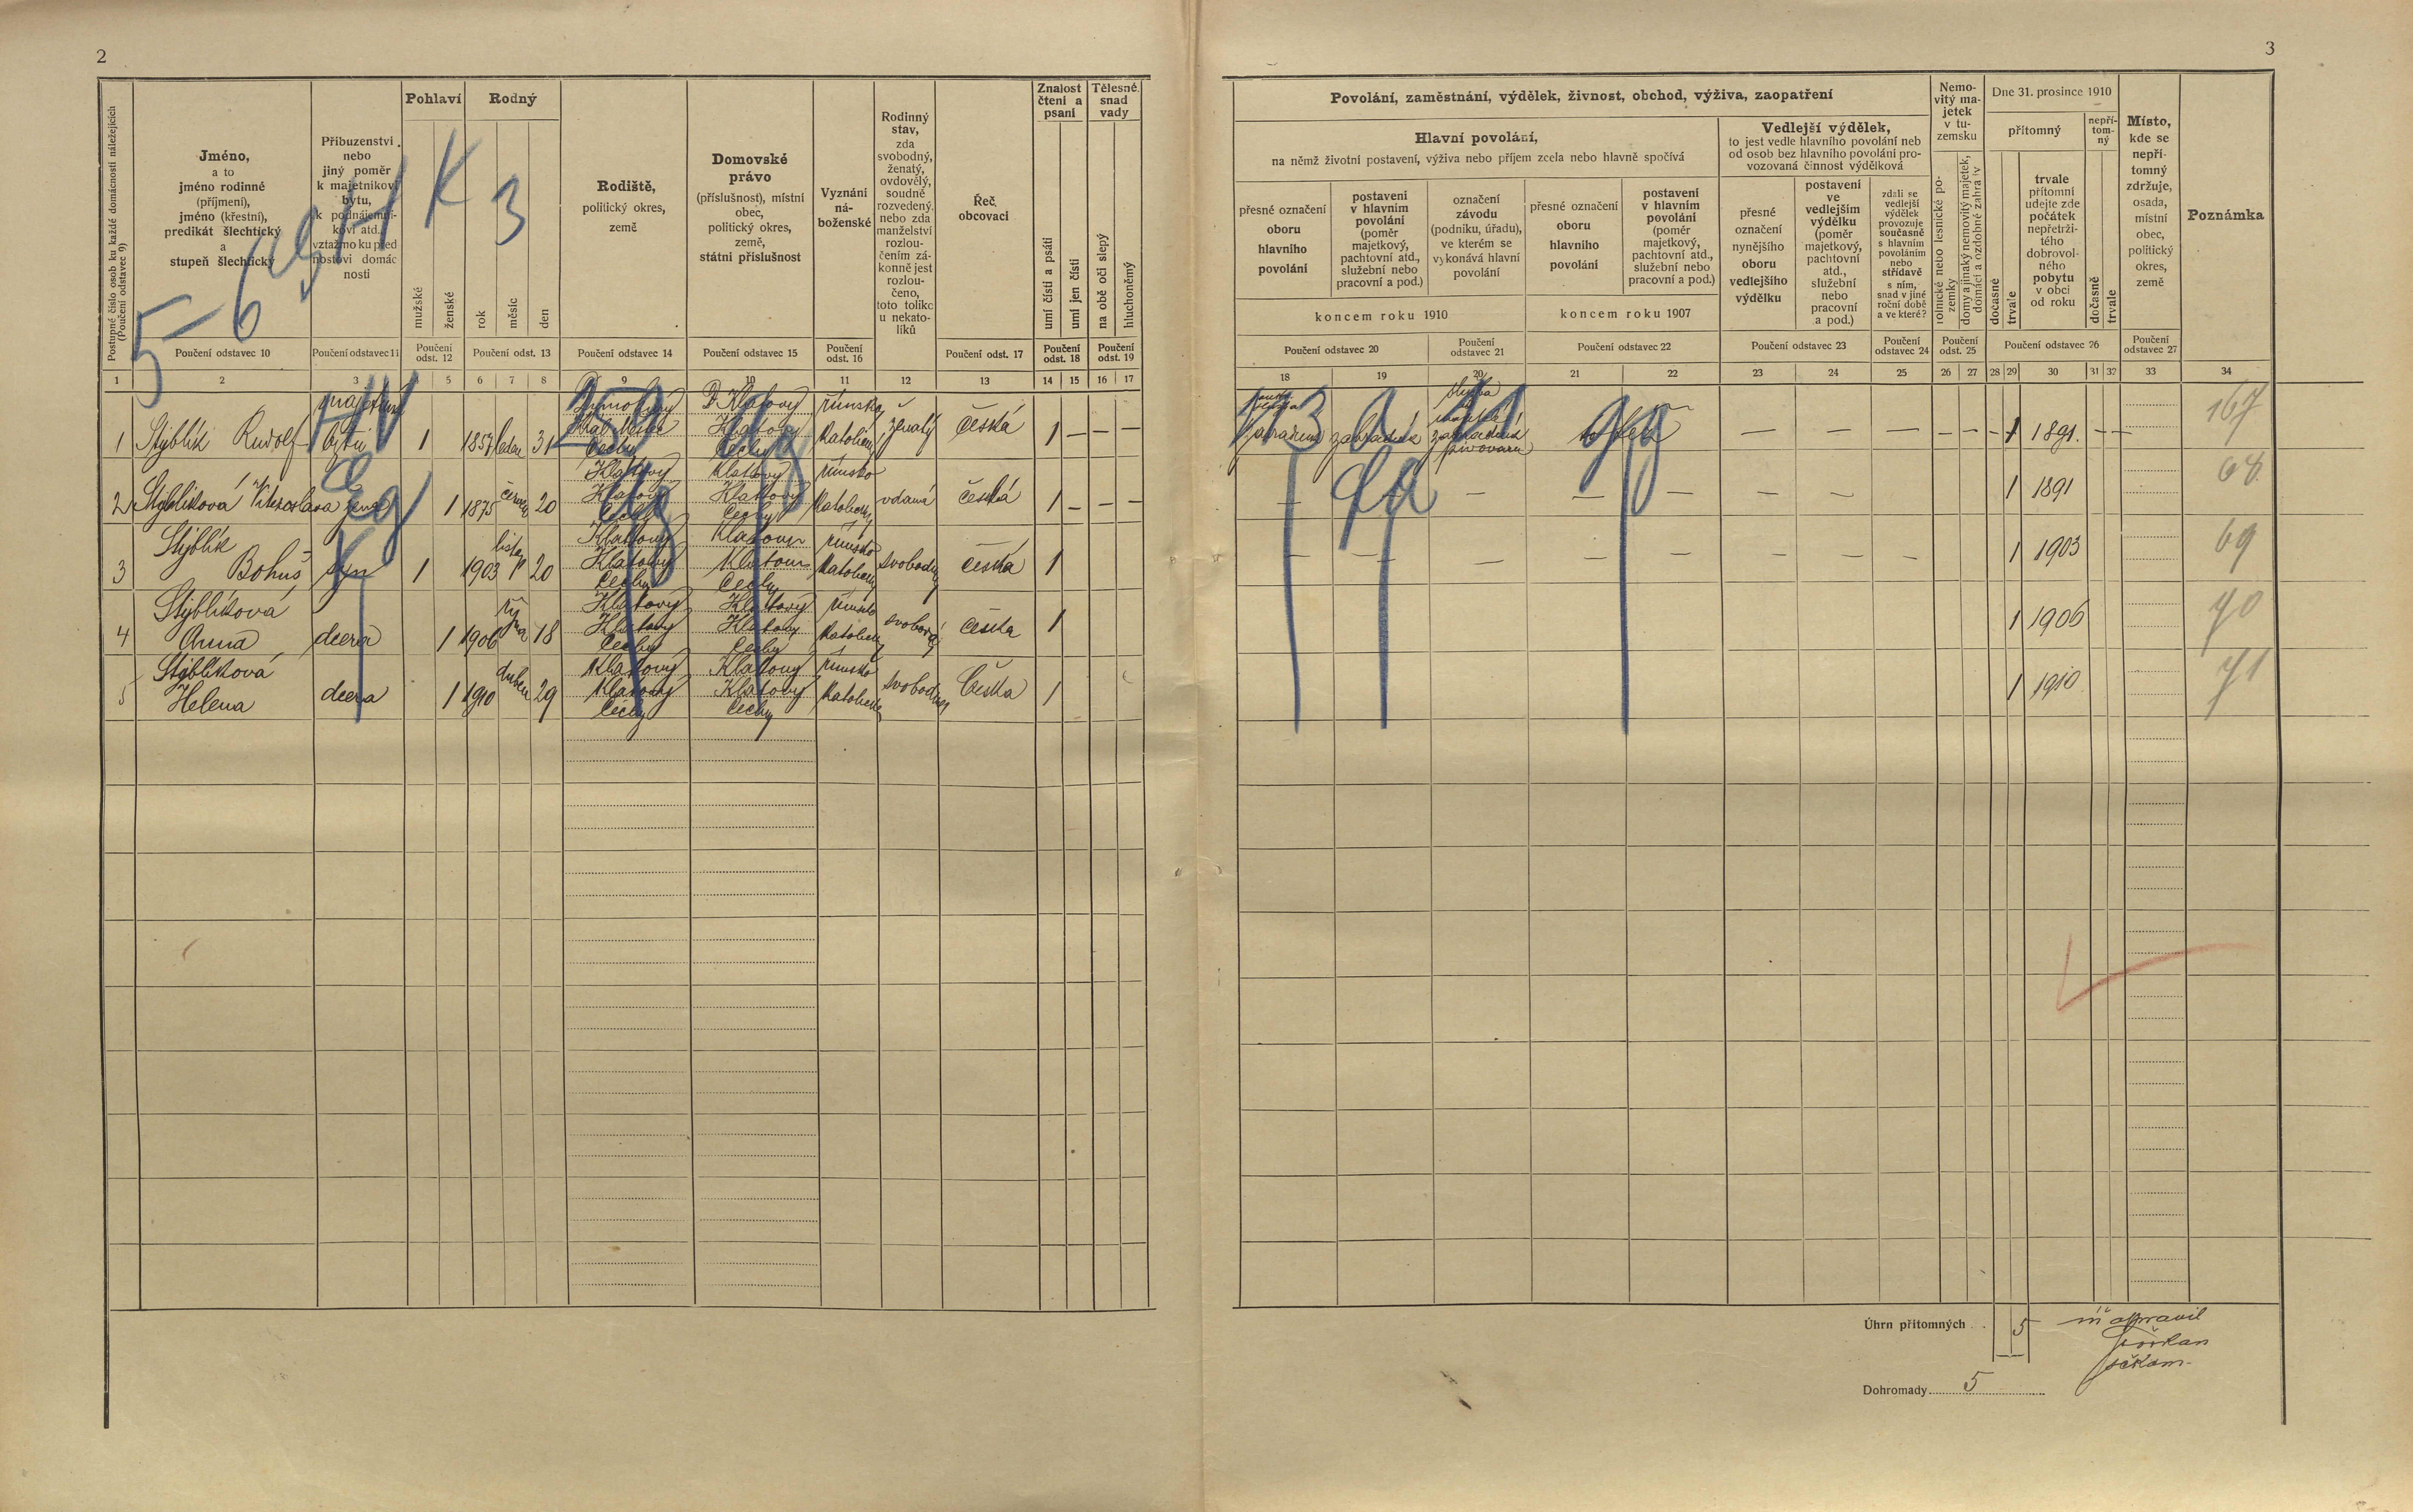 2
Postupné číslo osob ku každé domácnosti náležejících
(Poučení odstavec 9)
Jméno,
a to
jméno rodinné
(příjmení),
jméno (křestní),
predikát šlechtický
a
stupeň šlechtický
Příbuzenství
nebo
jiný poměr
k majetníkovi
bytu,
k podnájemní-
kovi atd.,
vztažmo ku před
nostovi domác
nosti
Pohlaví
mužské
ženské
Rodný
rok
měsíc
den
Rodiště,
politický okres,
země
Domovské
právo
(příslušnost), místní
obec,
politický okres,
země,
státní příslušnost
Vyznání
ná-
boženské
Rodinný
stav,
zda
svobodný,
ženatý,
ovdovělý,
soudně
rozvedený,
nebo zda
manželství
rozlou-
čením zá-
konně jest
rozlou-
čeno,
toto toliko
u nekato-
líků
Řeč
obcovací
Znalost
čtení a
psaní
umí čísti a psáti
umí jen čísti
Tělesné
snad
vady
na obě oči slepý
hluchoněmý
Poučení odstavec 10
Poučení odstavec 11
Poučení
odst. 12
Poučení odst. 13
Poučení odstavec 14
Poučení odstavec 15
Poučení
odst. 16
Poučení odst. 17
Poučení
odst. 18
Poučení
odst. 19
1 2 3 4 5 6 7 8 9 10 11 12 13 14 15 16 17
5-6
K 3
1 Stýblík Rudolf majetník bytu 1 1857 leden 31 Čechy Klatovy Klatovy Čechy římsko katolické ženatý česká 1 — — —
2 Stýblíková Vítězoslava žena 1 1875 červen 20 Klatovy Klatovy Čechy Klatovy Klatovy Čechy římsko katolické vdaná česká 1 — — —
3 Stýblík Bohuš syn 1 1903 listop 20 Klatovy Klatovy Čechy Klatovy Klatovy Čechy římsko katolické svobodný česká 1
4 Stýblíková Anna dcera 1 1906 října 18 Klatovy Klatovy Čechy Klatovy Klatovy Čechy římsko katolické svobodná česká 1
5 Stýblíková Helena dcera 1 1910 duben 29 Klatovy Klatovy Čechy Klatovy Klatovy Čechy římsko katolické svobodná Česka 1
3
Povolání, zaměstnání, výdělek, živnost, obchod, výživa, zaopatření
Hlavní povolání,
na němž životní postavení, výživa nebo příjem zcela nebo hlavně spočívá
přesné označení
oboru
hlavního
povolání
postavení
v hlavním
povolání
(poměr
majetkový,
pachtovní atd.,
služební nebo
pracovní a pod.)
označení
závodu
(podniku, úřadu),
ve kterém se
vykonává hlavní
povolání
koncem roku 1910
přesné označení
oboru
hlavního
povolání
postavení
v hlavním
povolání
(poměr
majetkový,
pachtovní atd.,
služební nebo
pracovní a pod.)
koncem roku 1907
Vedlejší výdělek,
to jest vedle hlavního povolání neb
od osob bez hlavního povolání pro-
vozovaná činnost výdělková
přesné
označení
nynějšího
oboru
vedlejšího
výdělku
postavení
ve
vedlejším
výdělku
(poměr
majetkový,
pachtovní
atd.,
služební
nebo
pracovní
a pod.)
zdali se
vedlejší
výdělek
provozuje
současně
s hlavním
povoláním
nebo
střídavě
s ním,
snad v jiné
roční době
a ve které?
Nemo-
vitý ma-
jetek
v tu-
zemsku
rolnické nebo lesnické po-
zemky
domy a jinaký nemovitý majetek,
domácí a ozdobné zahrady
Dne 31. prosince 1910
přítomný
nepří-
tom-
ný
dočasně
trvale
trvale
přítomní
udejte zde
počátek
nepřetrži-
tého
dobrovol-
ného
pobytu
v obci
od roku
dočasně
trvale
Místo,
kde se
nepří-
tomný
zdržuje,
osada,
místní
obec,
politický
okres,
země
Poznámka
Poučení odstavec 20
Poučení
odstavec 21
Poučení odstavec 22
Poučení odstavec 23
Poučení
odstavec 24
Poučení
odst. 25
Poučení odstavec 26
Poučení
odstavec 27
18 19 20 21 22 23 24 25 26 27 28 29 30 31 32 33 34
zahradník 1 1891. 167
1 1891 68.
1 1903 69
1 1906 70
1 1910 71
Úhrn přítomných 5
Dohromady 5